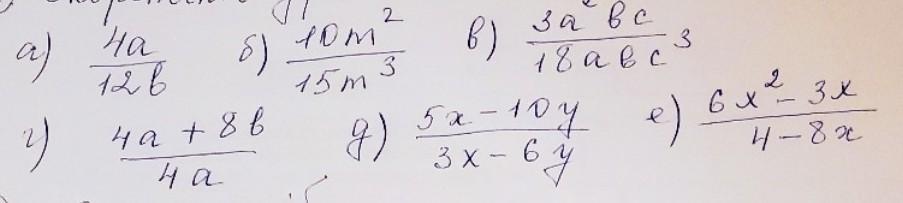 а) 4a/12b б) 10m²/15m³ в) 3a²bc/18abc³
г) (4a + 8b)/4a д) (5x - 10y)/(3x - 6y) е) (6x² - 3x)/(4 - 8x)